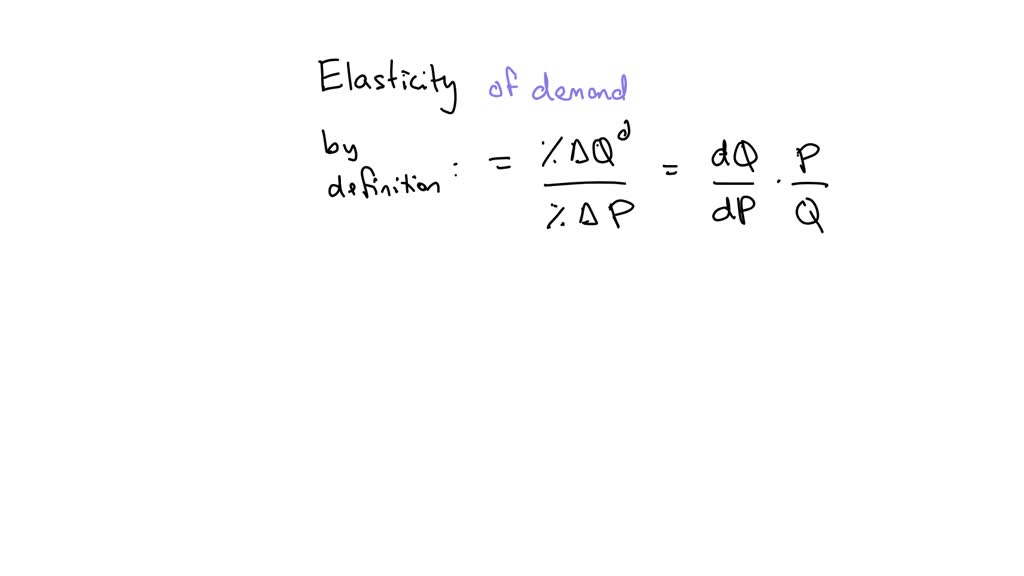 Elasticity of demand
by definition: = %ΔQᵈ / %ΔP = dQ/dP · P/Q